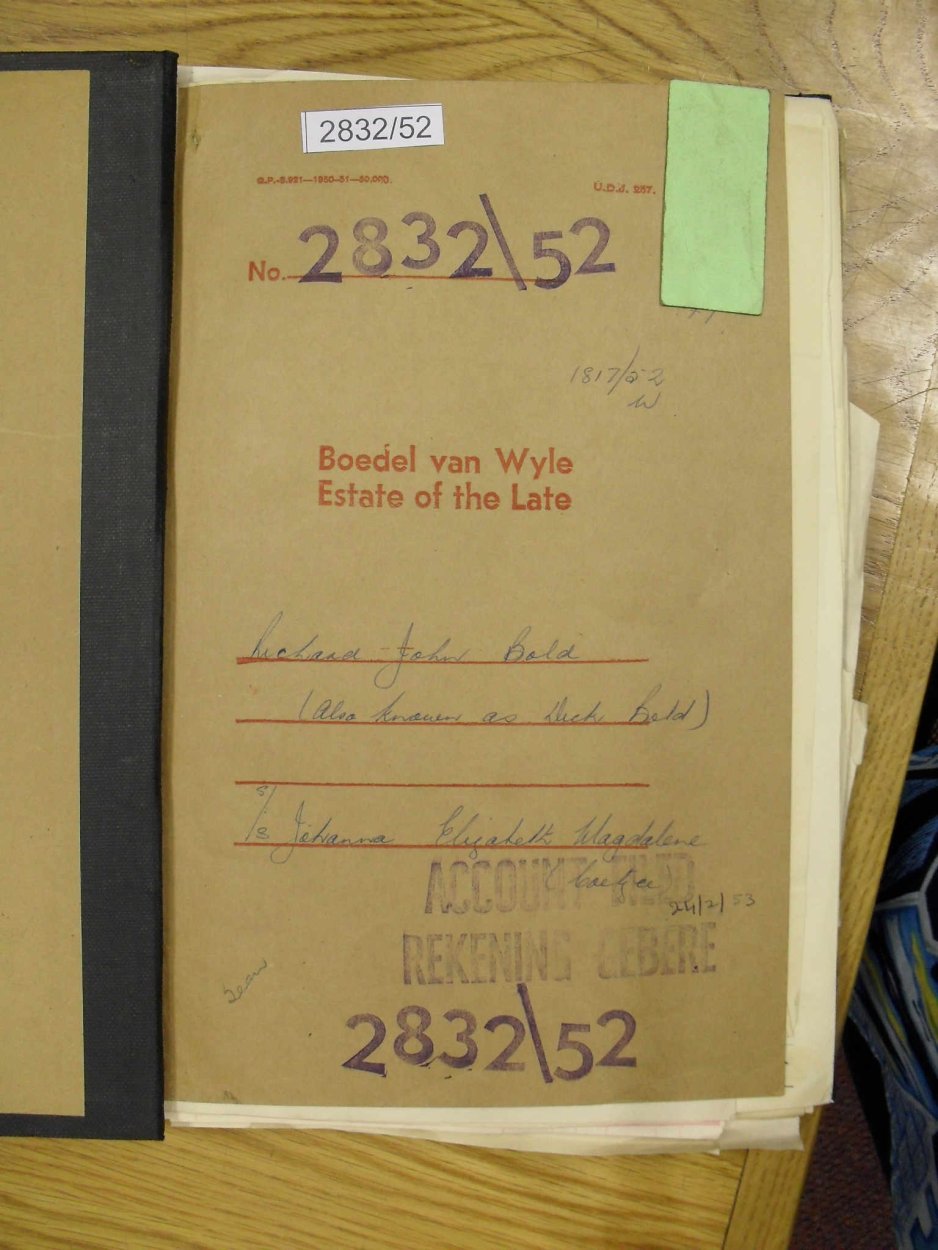 2832/52
G.P.-S.921—1950-51—50,000.
U.D.J. 257.
No. 2832\52
1817/52
W
Boedel van Wyle
Estate of the Late
Richard John Bold
(Also known as Dick Bold)
S/S Johanna Elizabeth Magdalene
(Coetzee)
ACCOUNT FILED
24/2/53
REKENING GEBERE
2832\52